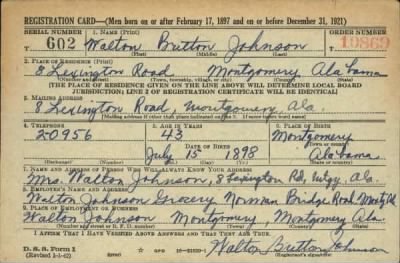 REGISTRATION CARD—(Men born on or after February 17, 1897 and on or before December 31, 1921)
SERIAL NUMBER 1. NAME (Print) ORDER NUMBER
T 602 Walton Britton Johnson T 10869
(First) (Middle) (Last)
2. PLACE OF RESIDENCE (Print)
8 Lexington Road Montgomery Alabama
(Number and street) (Town, township, village, or city) (County) (State)
[THE PLACE OF RESIDENCE GIVEN ON THE LINE ABOVE WILL DETERMINE LOCAL BOARD
JURISDICTION; LINE 2 OF REGISTRATION CERTIFICATE WILL BE IDENTICAL]
3. MAILING ADDRESS
8 Lexington Road, Montgomery, Ala.
[Mailing address if other than place indicated on line 2. If same insert word same]
4. TELEPHONE 5. AGE IN YEARS 6. PLACE OF BIRTH
20956 43 Montgomery
DATE OF BIRTH (Town or county)
July 15 1898 Alabama
(Exchange) (Number) (Mo.) (Day) (Yr.) (State or country)
7. NAME AND ADDRESS OF PERSON WHO WILL ALWAYS KNOW YOUR ADDRESS
Mrs. Walton Johnson, 8 Lexington Rd, Mtgy, Ala.
8. EMPLOYER'S NAME AND ADDRESS
Walton Johnson Grocery Norman Bridge Road Montg Ala
9. PLACE OF EMPLOYMENT OR BUSINESS
Walton Johnson Montgomery, Montgomery Ala.
(Number and street or R. F. D. number) (Town) (County) (State)
I AFFIRM THAT I HAVE VERIFIED ABOVE ANSWERS AND THAT THEY ARE TRUE.
D. S. S. Form 1 Walton Britton Johnson
(Revised 1-1-42) GPO (Registrant's signature)